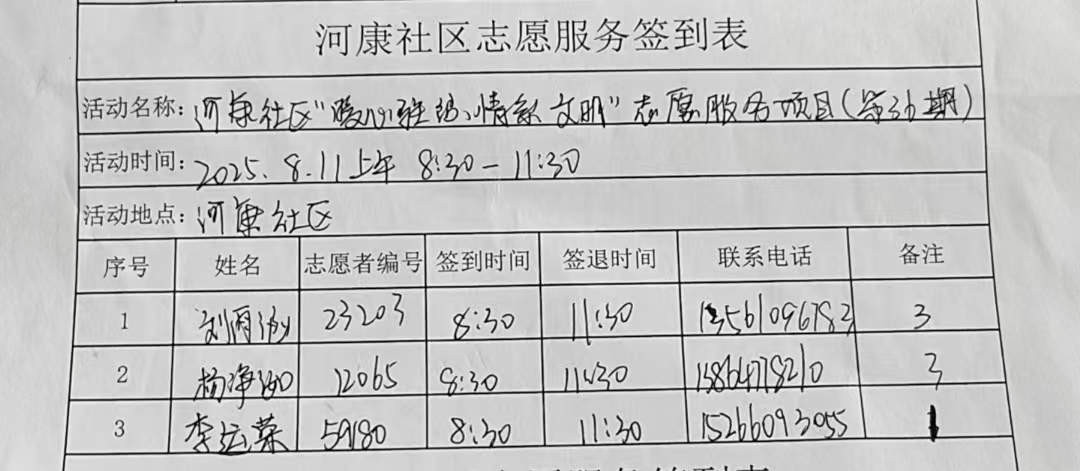 河康社区志愿服务签到表
活动名称: 河康社区"暖心驿站、情系文明"志愿服务项目(第36期)
活动时间: 2025.8.11上午 8:30-11:30
活动地点: 河康社区
序号 姓名 志愿者编号 签到时间 签退时间 联系电话 备注
1 刘 23203 8:30 11:30 13561096783 3
2 杨净 12065 8:30 11:30 13864778210 3
3 李运荣 59180 8:30 11:30 15266093055 1